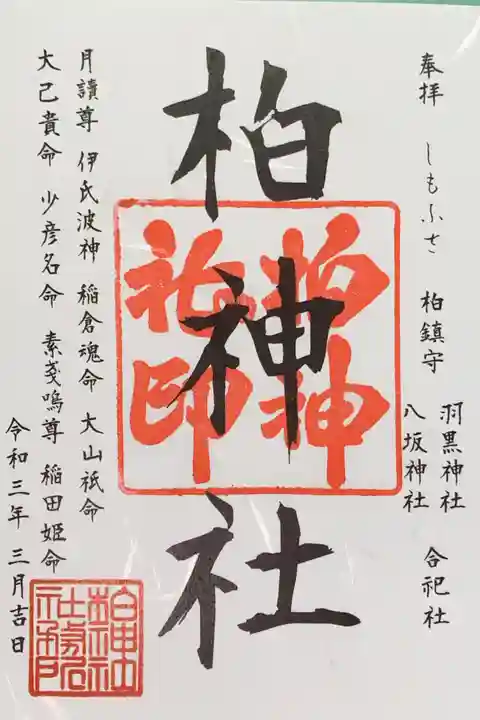 奉拝 しもふさ 柏鎮守
羽黒神社
八坂神社
合祀社
柏神社
柏神
社印
月讀尊 伊氐波神 稲倉魂命 大山祇命
大己貴命 少彦名命 素戔嗚尊 稲田姫命
令和三年 三月吉日
柏神社
社務所
印